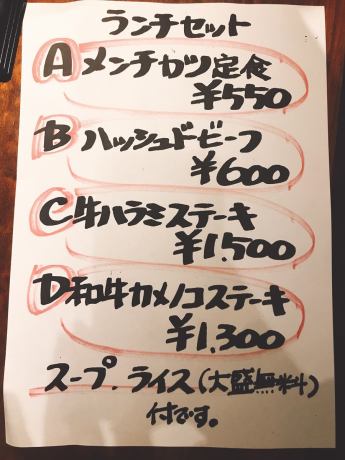 ランチセット
A メンチカツ定食
¥550
B ハッシュドビーフ
¥600
C 牛ハラミステーキ
¥1,500
D 和牛カメノコステーキ
¥1,300
スープ、ライス(大盛無料)
付です。